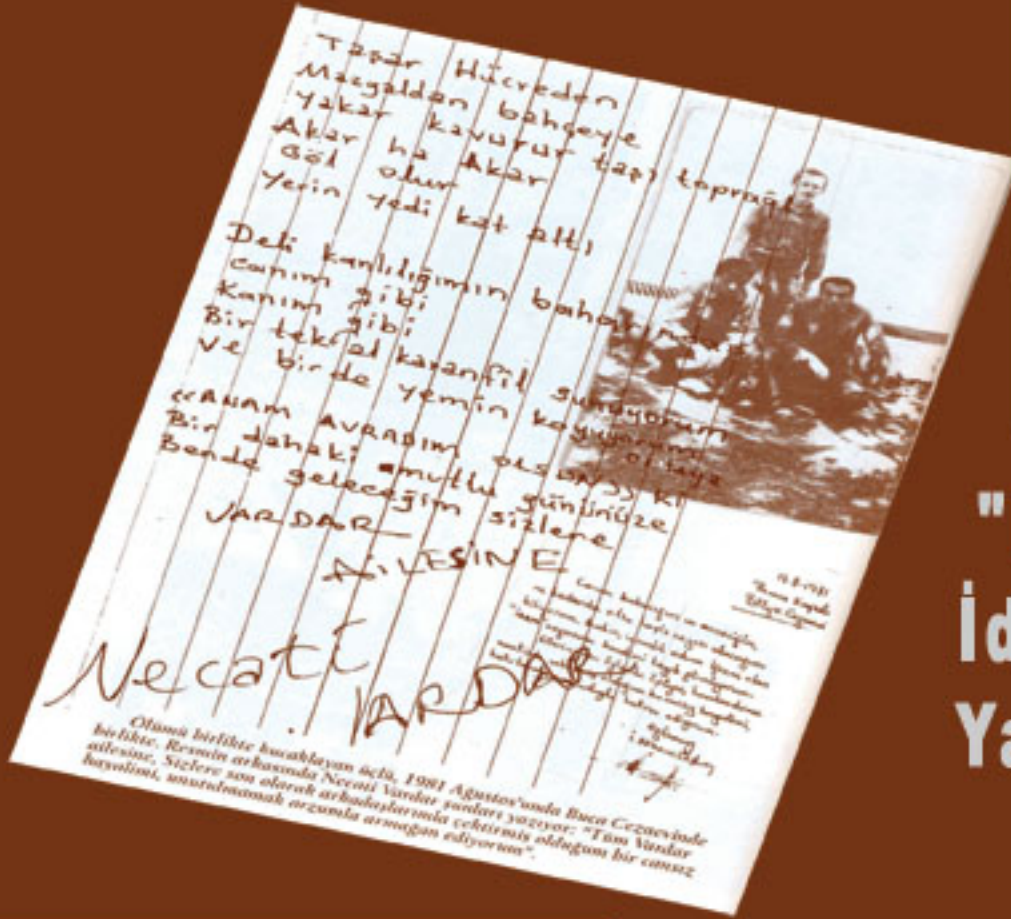 Taşar Hücreden
Mazgaldan bahçeye
Yakar kavurur taşı toprağı
Akar ha Akar
Göl olur
Yerin yedi kat altı
Deli kanlılığımın baharında
canım gibi
Kanım gibi
Bir tek al karanfil sunuyorum
ve bir de yemin koyuyorum ortaya
"ANAM AVRADIM OLSUN" Kİ
Bir dahaki mutlu gününüze
Bende geleceğim sizlere
VARDAR
AİLESİNE
Necati
VARDAR
Ölümü birlikte kucaklayan üçlü, 1981 Ağustos'unda Buca Cezaevinde
birlikte. Resmin arkasında Necati Vardar şunları yazıyor: "Tüm Vardar
ailesine, Sizlere son olarak arkadaşlarımla çektirmiş olduğum bir cansız
hayalimi, unutulmamak arzumla armağan ediyorum".
"
İd
Ya